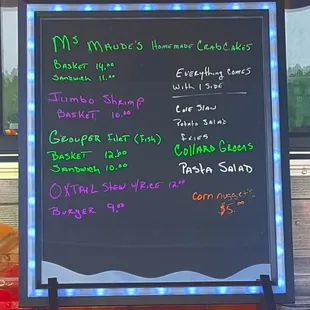 Ms Maude's Homemade CrabCakes
Basket 14.00
Sandwich 11.00
Jumbo Shrimp
Basket 10.00
Grouper Filet (Fish)
Basket 12.00
Sandwich 10.00
Oxtail Stew w/Rice 12.00
Burger 9.00
Everything comes
with 1 side
Cole Slaw
Potato Salad
Fries
Collard Greens
Pasta Salad
Corn nuggets
$5.00